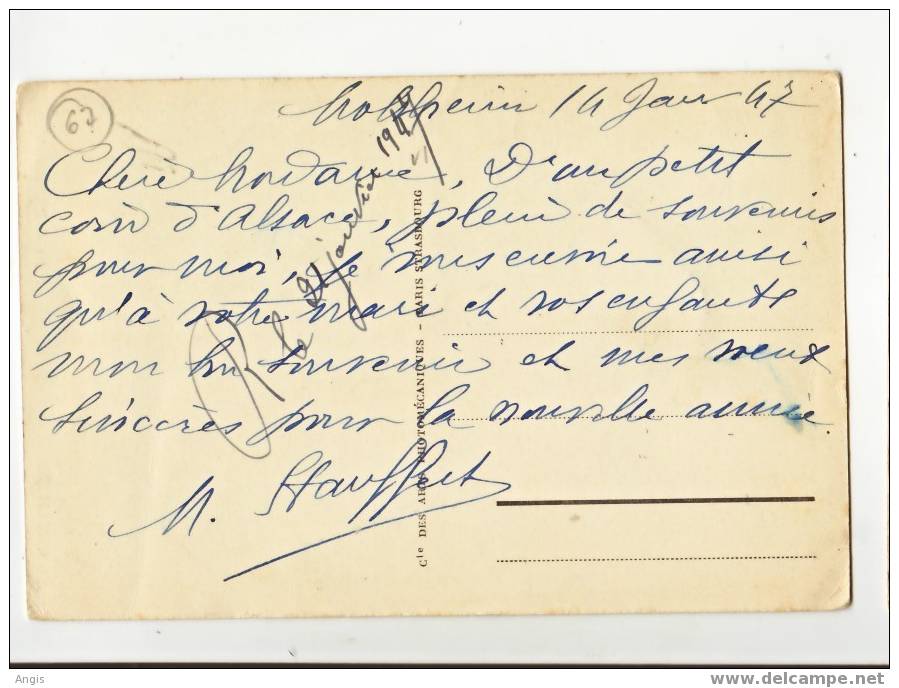 67
Molsheim 14 Janv 47
Chère Madame, D'un petit
coin d'Alsace, plein de souvenirs
pour moi, je vous envoie ainsi
qu'à votre mari et vos enfants
mon bon souvenir et mes voeux
sincères pour la nouvelle année.
M. Stauffert
R le 21 janvier 1947
Cie DES ARTS PHOTOMÉCANIQUES - PARIS STRASBOURG
Angis
www.delcampe.net